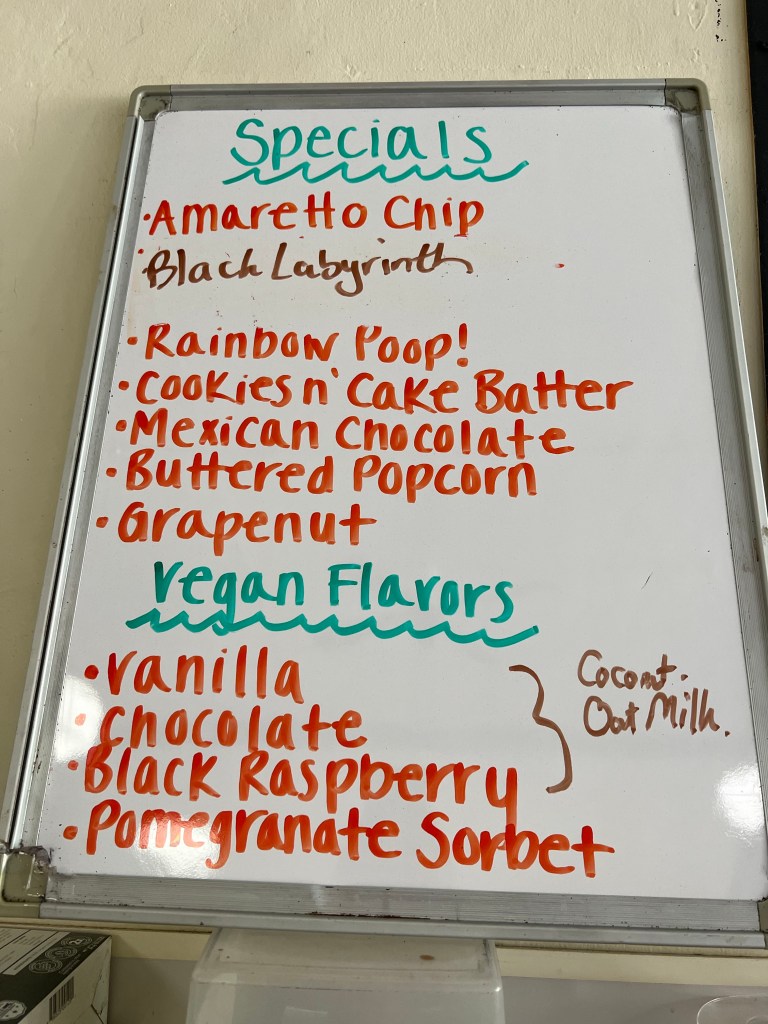 Specials
• Amaretto Chip
• Black Labyrinth
• Rainbow Poop!
• Cookies n' Cake Batter
• Mexican Chocolate
• Buttered Popcorn
• Grapenut
Vegan Flavors
• Vanilla
• Chocolate
• Black Raspberry
Coconut.
Oat Milk.
• Pomegranate Sorbet